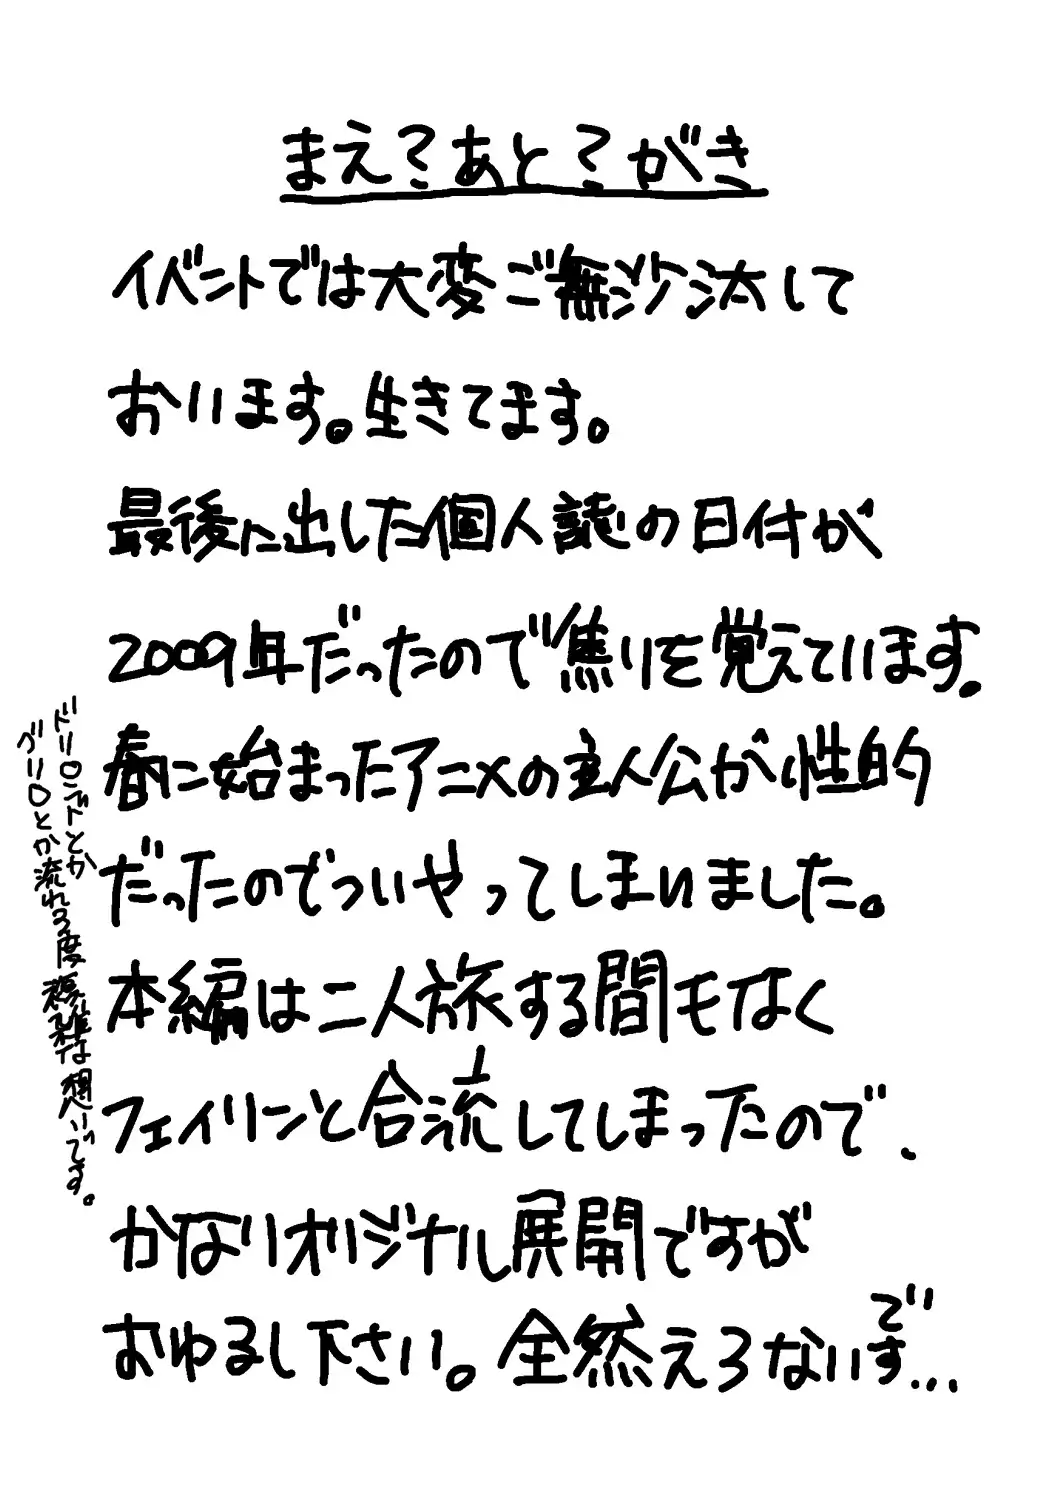 まえ?あと?がき
イベントでは大変ご無沙汰して
おります。生きてます。
最後に出した個人誌の日付が
2009年だったので焦りを覚えています。
春に始まったアニメの主人公が性的
だったのでついやってしまいました。
本編は二人旅する間もなく
フェイリンと合流してしまったので、
かなりオリジナル展開ですが
おゆるし下さい。全然えろないです…
で
ドリロンドとか
ゾリロとか流れる度複雑な想いです。